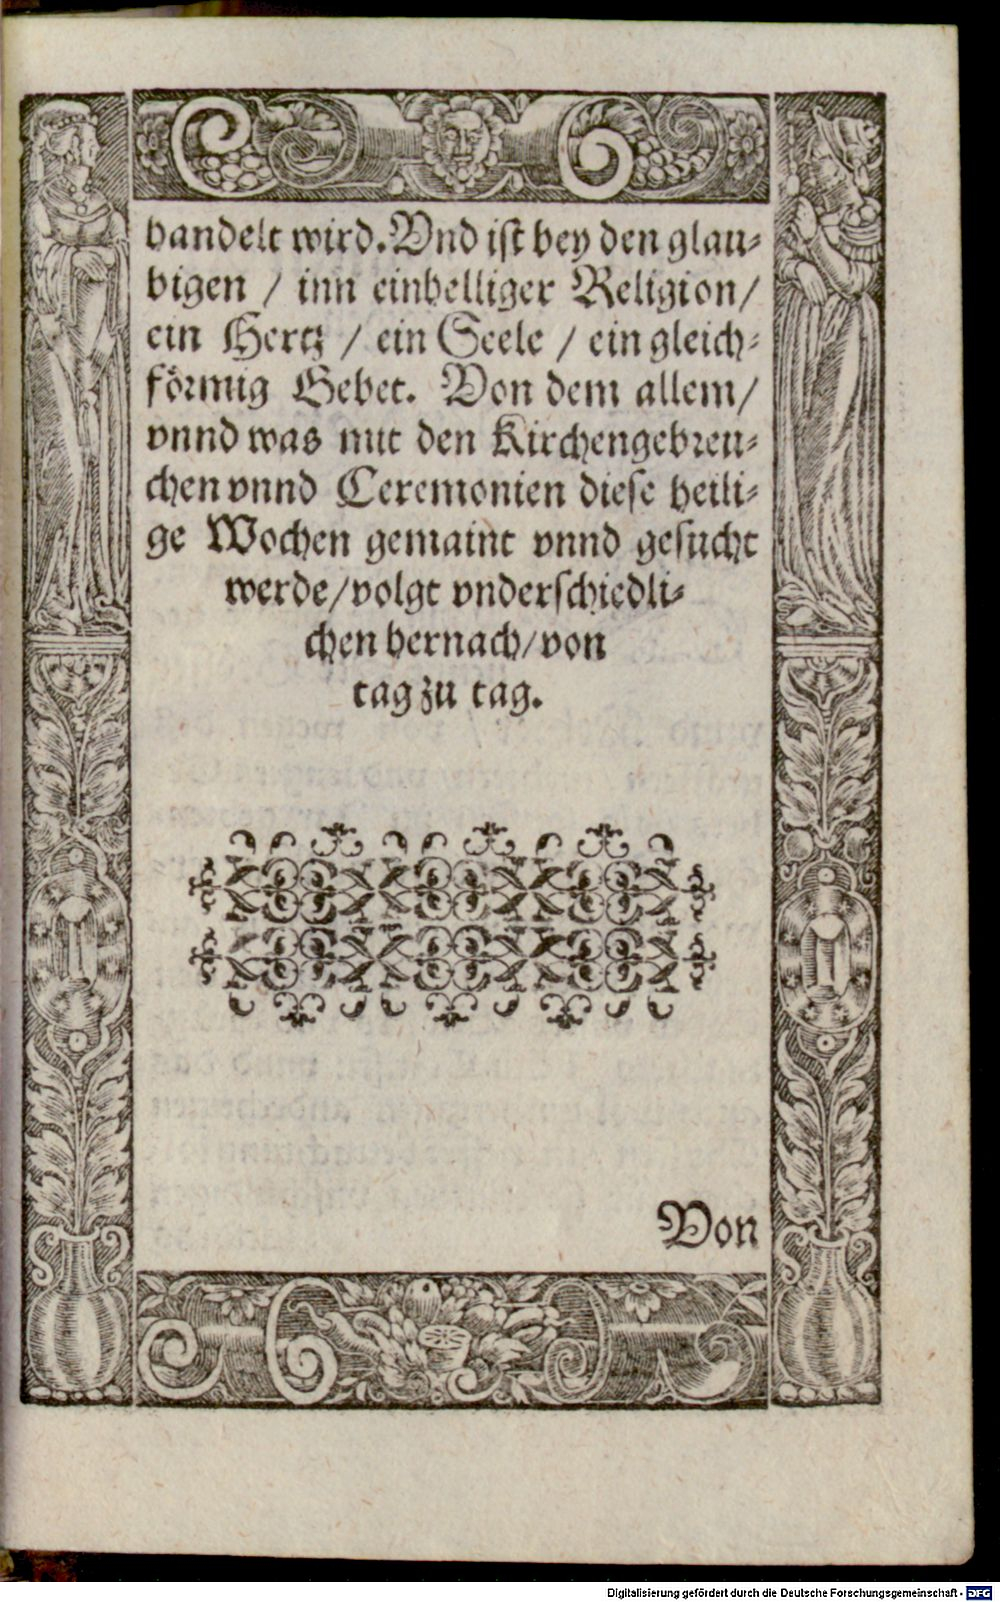 handelt wird. Vnd ist bey den glau-
bigen / inn einhelliger Religion /
ein Hertz / ein Seele / ein gleich-
förmig Gebet. Von dem allem /
vnnd was mit den Kirchengebreu-
chen vnnd Ceremonien diese heili-
ge Wochen gemaint vnnd gesucht
werde / volgt vnderschiedli-
chen hernach / von
tag zu tag.
Von
Digitalisierung gefördert durch die Deutsche Forschungsgemeinschaft - DFG